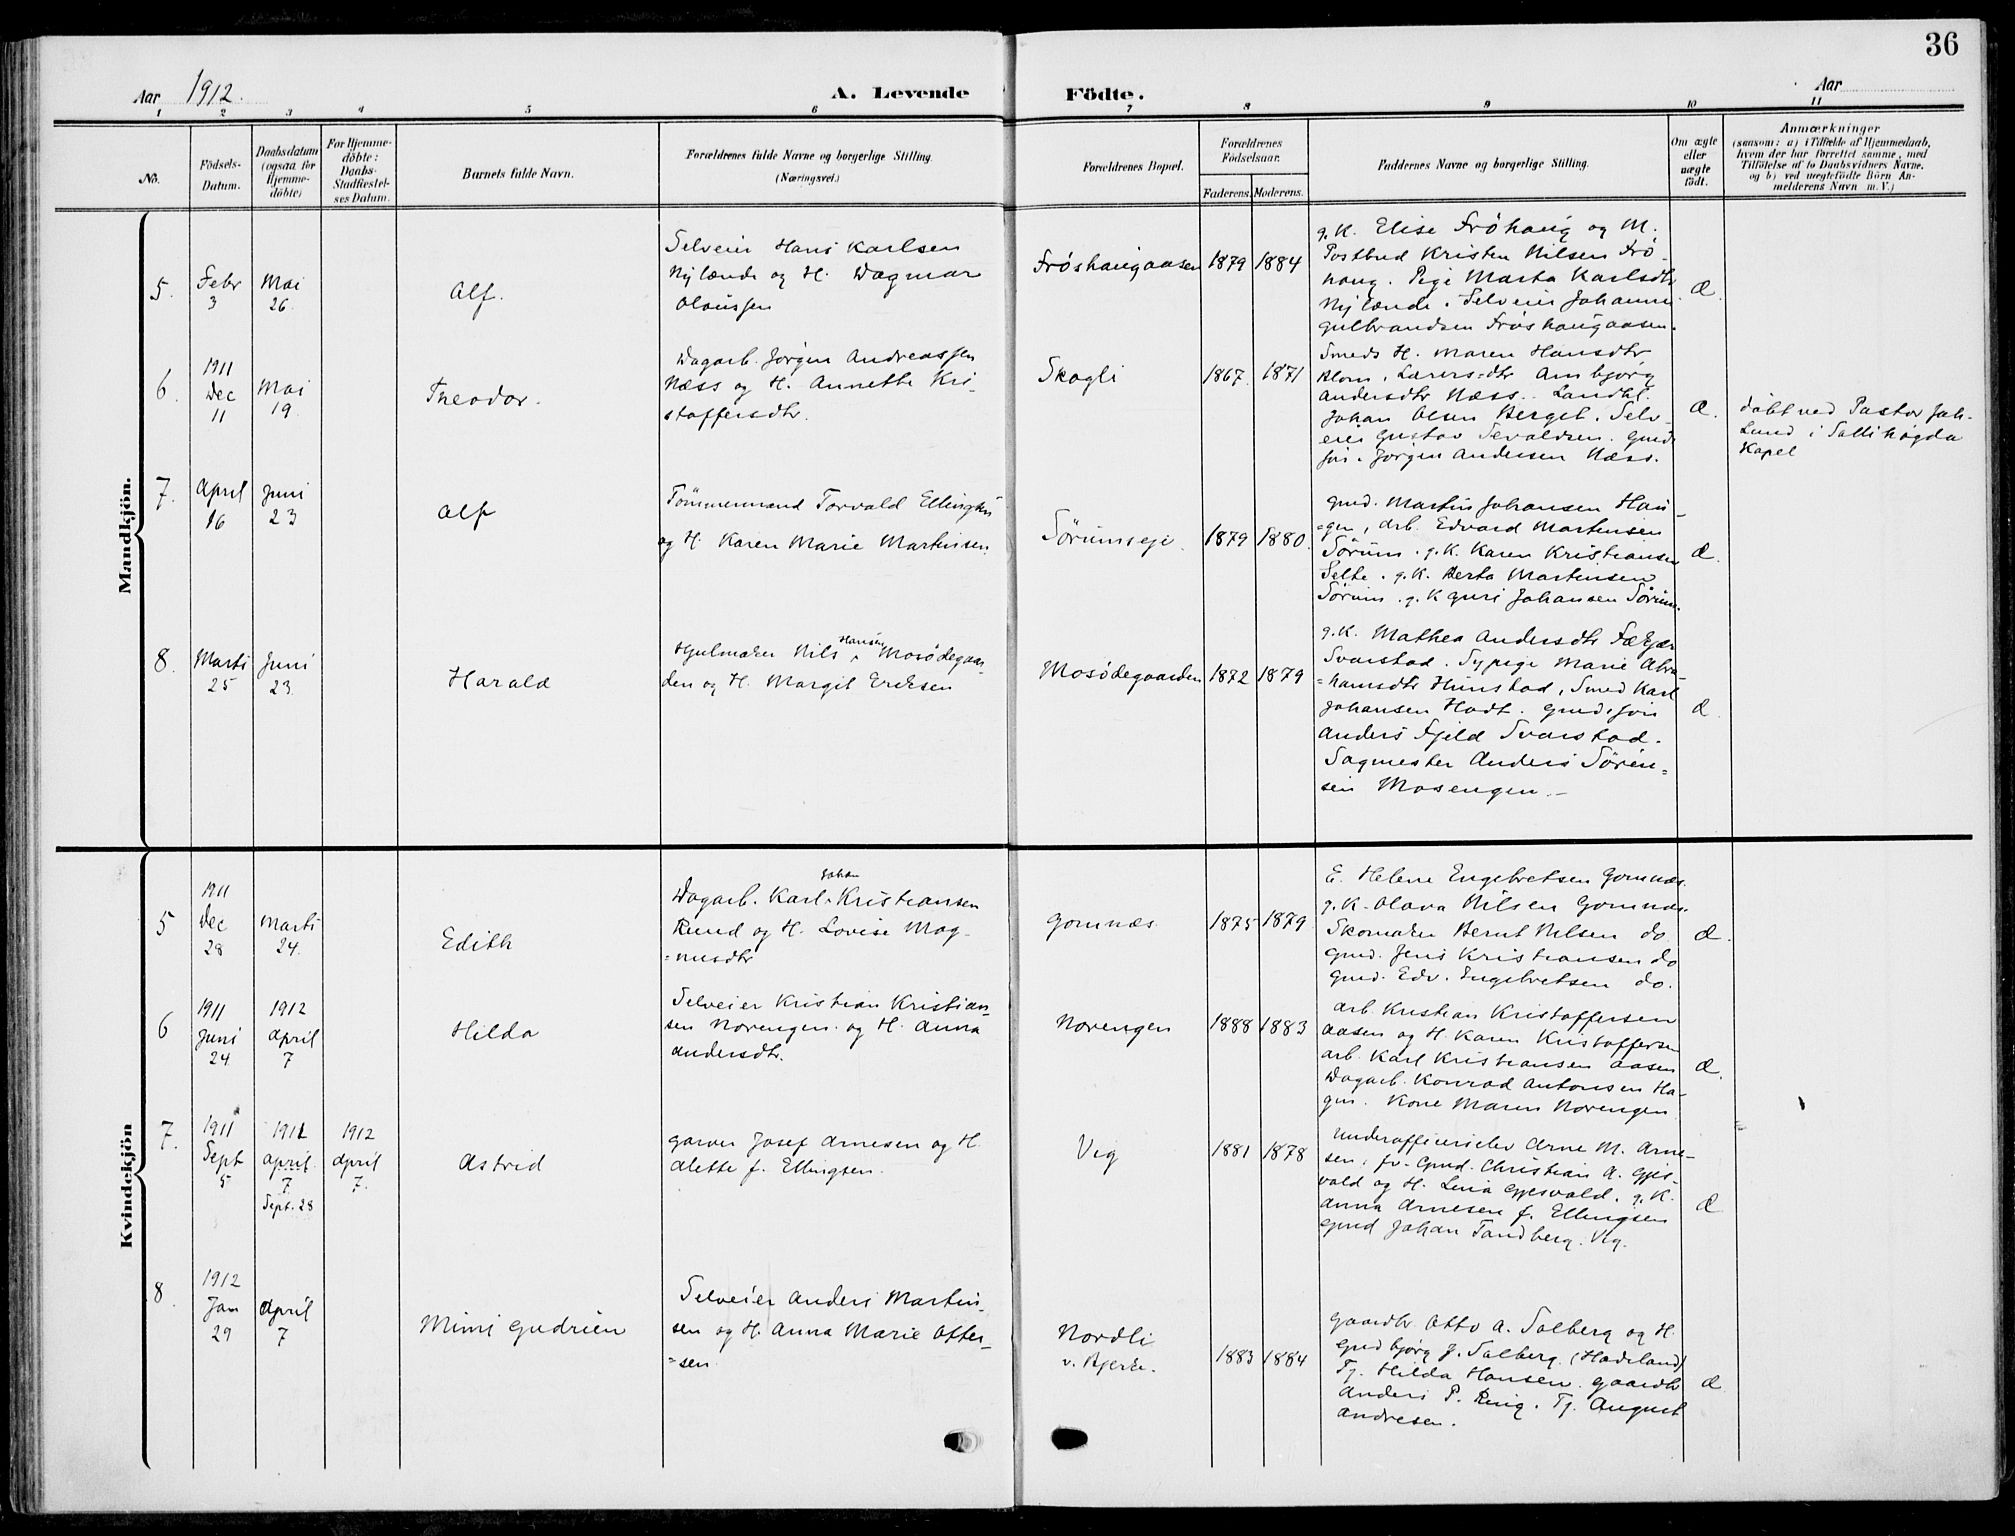 36
Aar 1912.
A. Levende Födte.
Aar
1 2 3 4 5 6 7 8 9 10 11
No.
Födsels-
Datum.
Daabsdatum
(ogsaa for
Hjemme-
döbte)
For Hjemme-
döbte:
Daabs-
Stadfæstel-
ses Datum.
Barnets fulde Navn.
Forældrenes fulde Navne og borgerlige Stilling.
(Næringsvei.)
Forældrenes Bopæl.
Forældrenes
Födselsaar.
Faderens. Moderens.
Faddernes Navne og borgerlige Stilling.
Om ægte
eller
uægte
födt.
Anmærkninger
(saasom: a) i Tilfælde af Hjemmedaab,
hvem der har forrettet samme, med
Tilföielse af to Daabsvidners Navne.
og b) ved uægtefödte Börn An-
melderens Navn m. V.)
Mandkjön.
5.
Febr
3
Mai
26.
Alf.
Selveier Hans Karlsen
Nylænde og H. Dagmar
Olaussen
Frøshaugaasen
1879
1884
g.K. Elise Frøhaug og M.
Postbud Kristen Nilsen Frø-
haug. Pige Marta Karlsdtr
Nylænde. Selveier Johannes
Gulbrandsen Frøshaugaasen.
Æ.
6.
1911
Dec
11
Mai
19.
Theodor.
Dagarb. Jørgen Andreassen
Næss og H. Annette Kri-
stoffersdtr.
Skogli
1867.
1871
Smeds H. Maren Hansdtr
Blom. Lærers dtr Ambjørg
Andersdtr Næss. Landhl.
Johan Olsen Berget. Selv-
eier Gustav Sevaldsen. Gmd
søn. Jørgen Andersen Næss.
Æ.
døbt ved Pastor Joh.
Lund i Sollihøgda
Kapel
7.
April
16
Juni
23
Alf
Tømmermand Torvald Ellingsen
og H. Karen Marie Martinsen.
Sørumseje.
1879
1880.
Gmd. Martin Johansen Hau-
=gen, arb. Edvard Martinsen
Sørum. g.K. Karen Kristiansen
Selte. g.K. Berta Martinsen
Sørum. g.K Guri Johansen Sørum.
Æ.
8.
Marts
25
Juni
23.
Harald
Hjulmaker Nils Hansen Mosødegaar-
den og H. Margit Eriksen
Mosødegaarden
1872
1879
g.K. Mathea Andersdtr Fækjær
Svarstad. Sypige Marie Abra-
=hamsdtr Hunstad, Smed Karl
Johansen Hodt. Gmd.søn
Anders Fjeld Svarstad.
Sagmester Anders Søren=
sen Mosengen.–
Æ.
Kvindekjön
5
1911
Dec
28
Marts
24.
Edith
Johan
Dagarb. Karl Kristiansen
Rund og H. Lovise Mag-
=nusdtr
Gomnæs.
1875
1879
E. Helene Engebretsen Gomnæs.
g.K. Olava Nilsen Gomnæs.
Skomaker Bernt Nilsen do
Gmd. Jens Kristiansen do
Gmd. Edv. Engebretsen do.
Æ.
6
1911
Juni
24
1912
April
7
Hilda
Selveier Kristian Kristian-
sen Norengen. og H. Anna
Andersdtr.
Norengen
1888
1883
Arb. Kristian Kristoffersen
Aasen og H. Karen Kristoffersen
arb. Karl Kristiansen Aasen
Dagarb. Konrad Antonsen Ha-
gen. Kone Maren Norengen
Æ.
7.
1911
Sept
5
1912
April
7
Sept. 28
1912
April
7.
Astrid
Garver Josef Arnesen og H.
Alette f. Ellingsen.
Veg
1881
1878
Underofficerselev Arne M. Arne-
sen, fv. Gmd. Christian A. Gjes-
vold og H. Lina Gjesvold. g.K.
Anna Arnesen f. Ellingsen
Gmd Johan Tandberg. Veg.
Æ
8.
1912
Jan
29
April
7
Mimi Gudrun
Selveier Anders Martin-
sen og H. Anna Marie Otter-
=sen.
Nordli
v. Bjerke.
1883
1884
Gaardbr Otto A. Solberg og H.
Gudbjørg J. Solberg. (Hadeland)
Tj. Hilda Hansen. Gaardbr
Anders P. Ring. Tj. August
Andresen.
Æ.